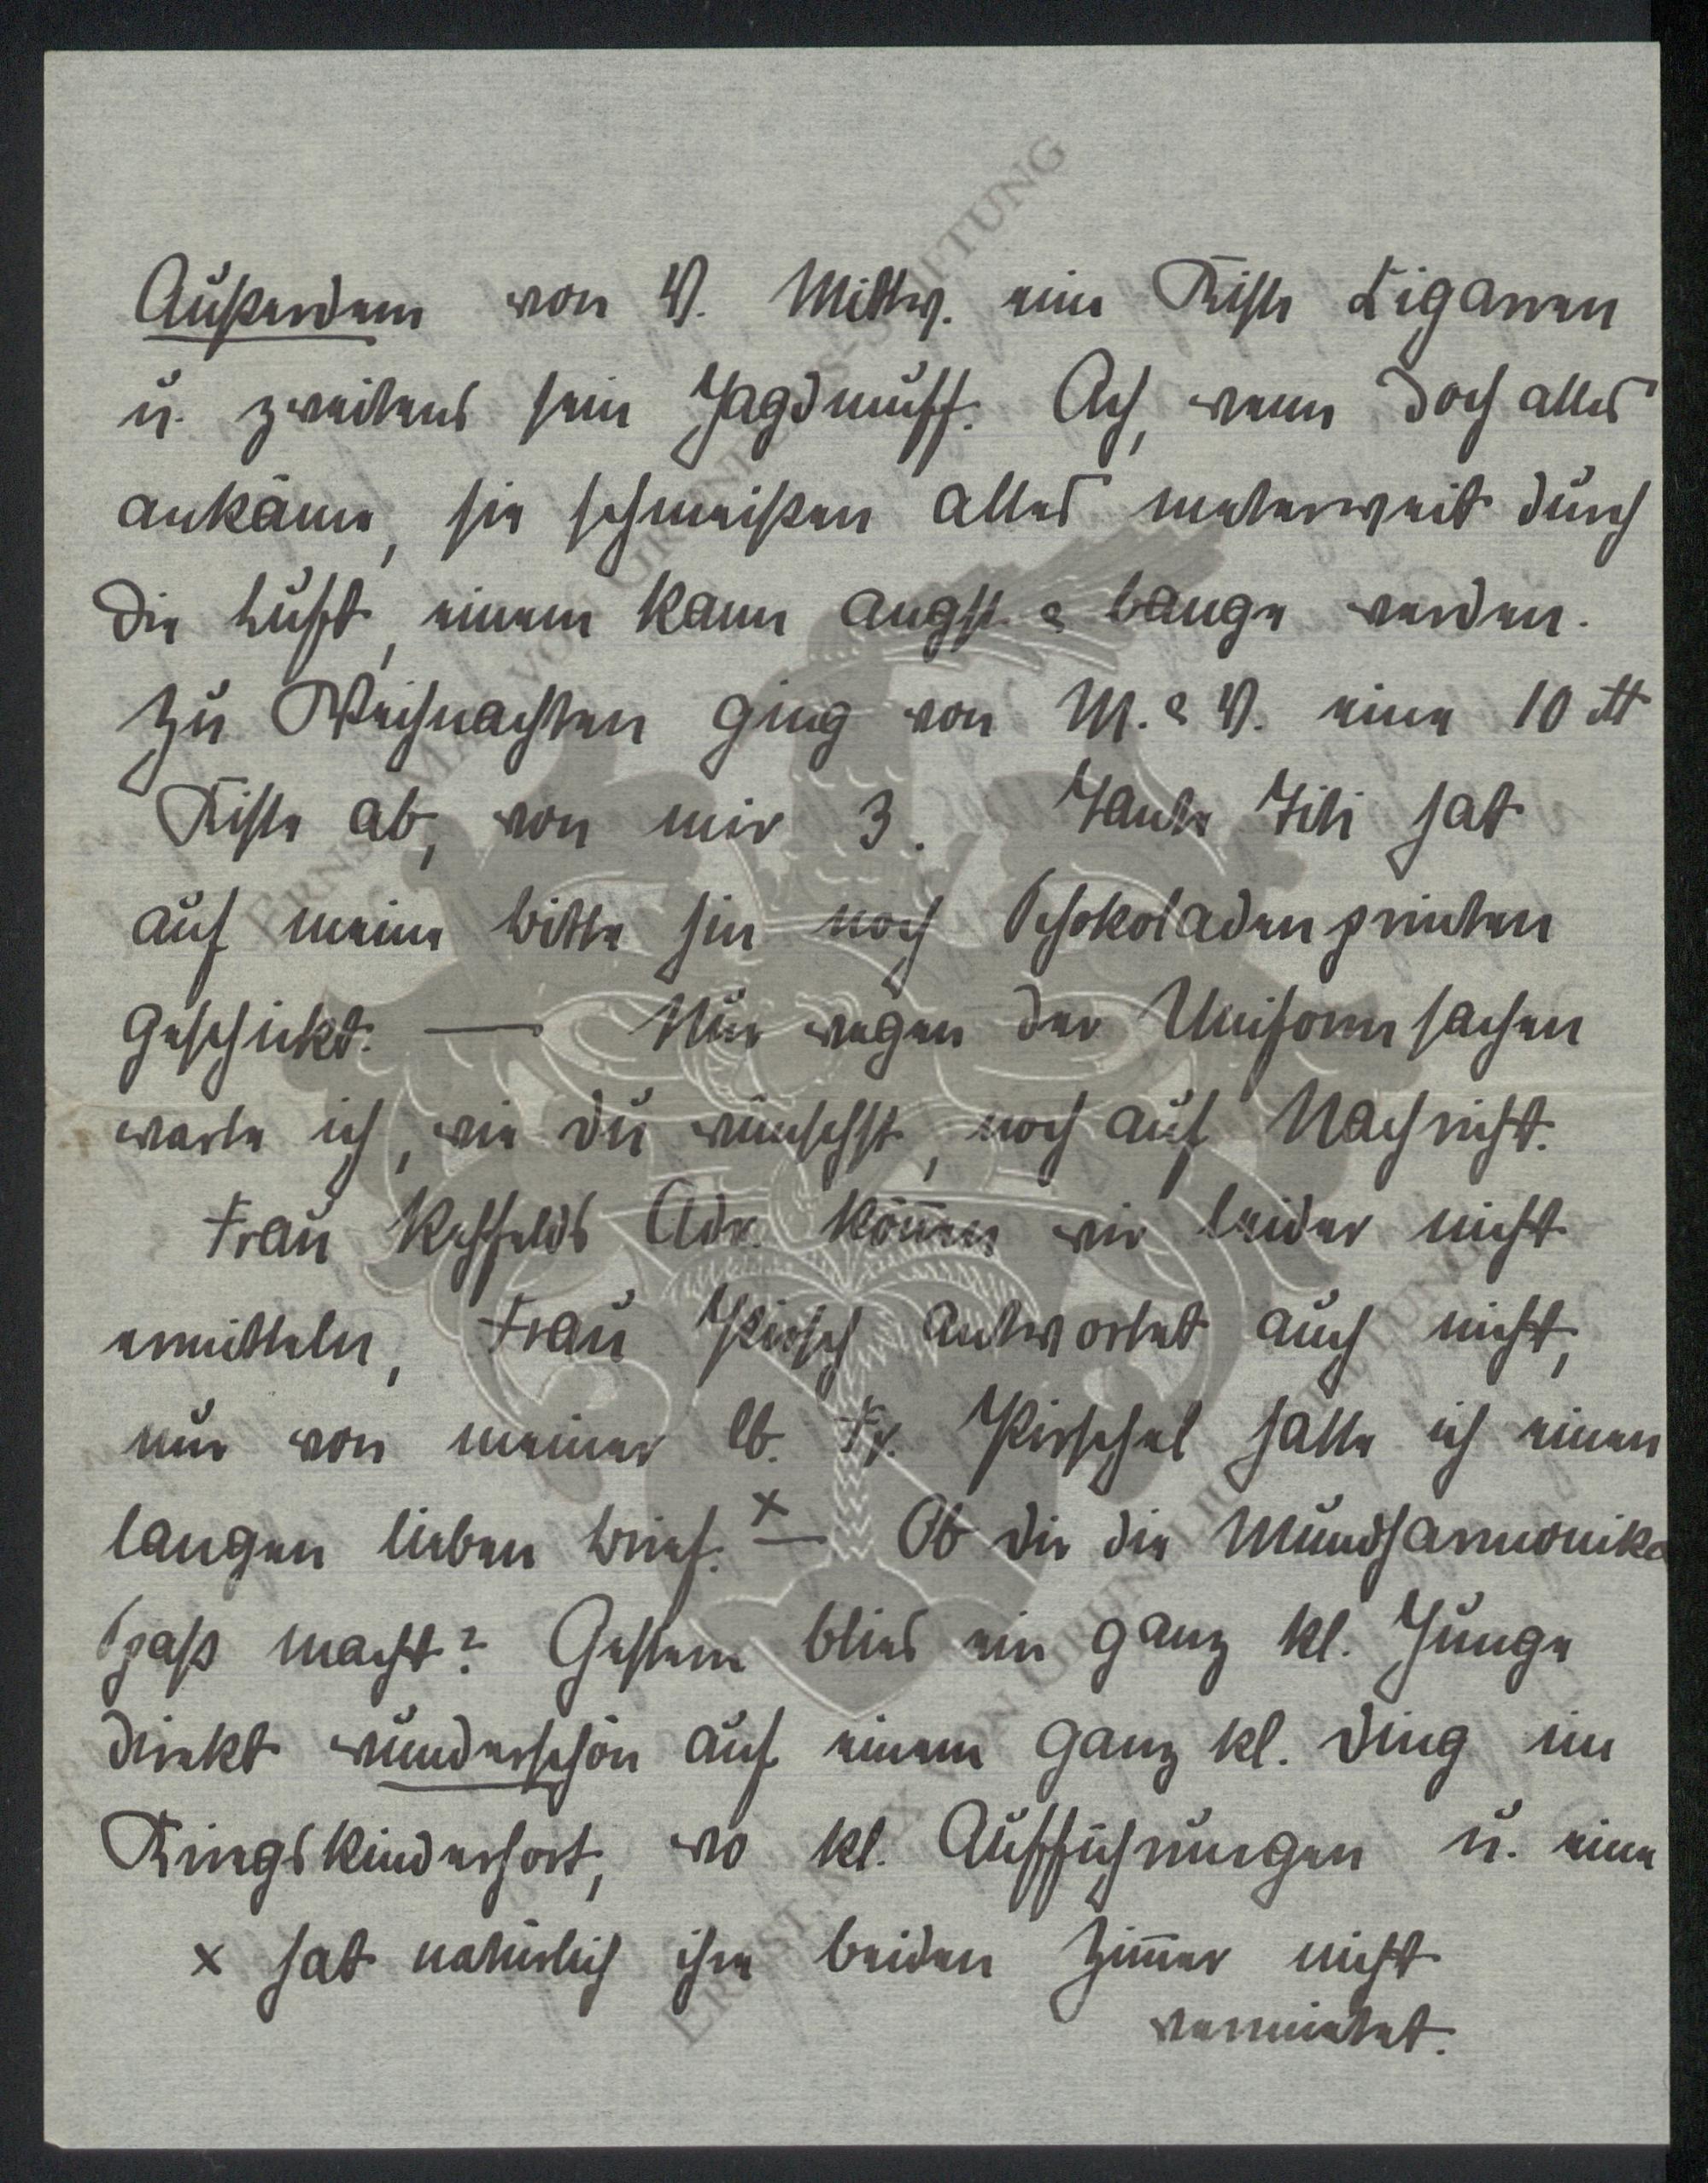 Außerdem von V. Mittw. eine Kiste Zigarren
u. zweitens sein Jagdmuff. Ach, wenn doch alles
ankäme, sie schmeißen alles meterweit durch
die Luft, einem kann angst & bange werden.
Zu Weihnachten ging von M. & V. eine 10 ℔
Kiste ab, von mir 3. Tante Tili hat
auf meine Bitte hin noch Schokoladenprinten
geschickt. — Nur wegen der Uniformsachen
warte ich, wie du wünschst, noch auf Nachricht.
Frau Adr. können wir leider nicht
ermitteln, Frau antwortet auch nicht,
nur von meiner lb. Fr. hatte ich einen
langen lieben Brief. x — Ob dir die Mundharmonika
Spaß macht? Gestern blies ein ganz kl. Junge
direkt wunderschön auf einem ganz kl. Ding im
Kriegskinderhort, wo kl. Aufführungen u. eine
x hat natürlich ihre beiden Zimmer nicht
vermietet.
ERNST, MAX VON GRUNELIUS-STIFTUNG
ERNST, MAX VON GRUNELIUS-STIFTUNG